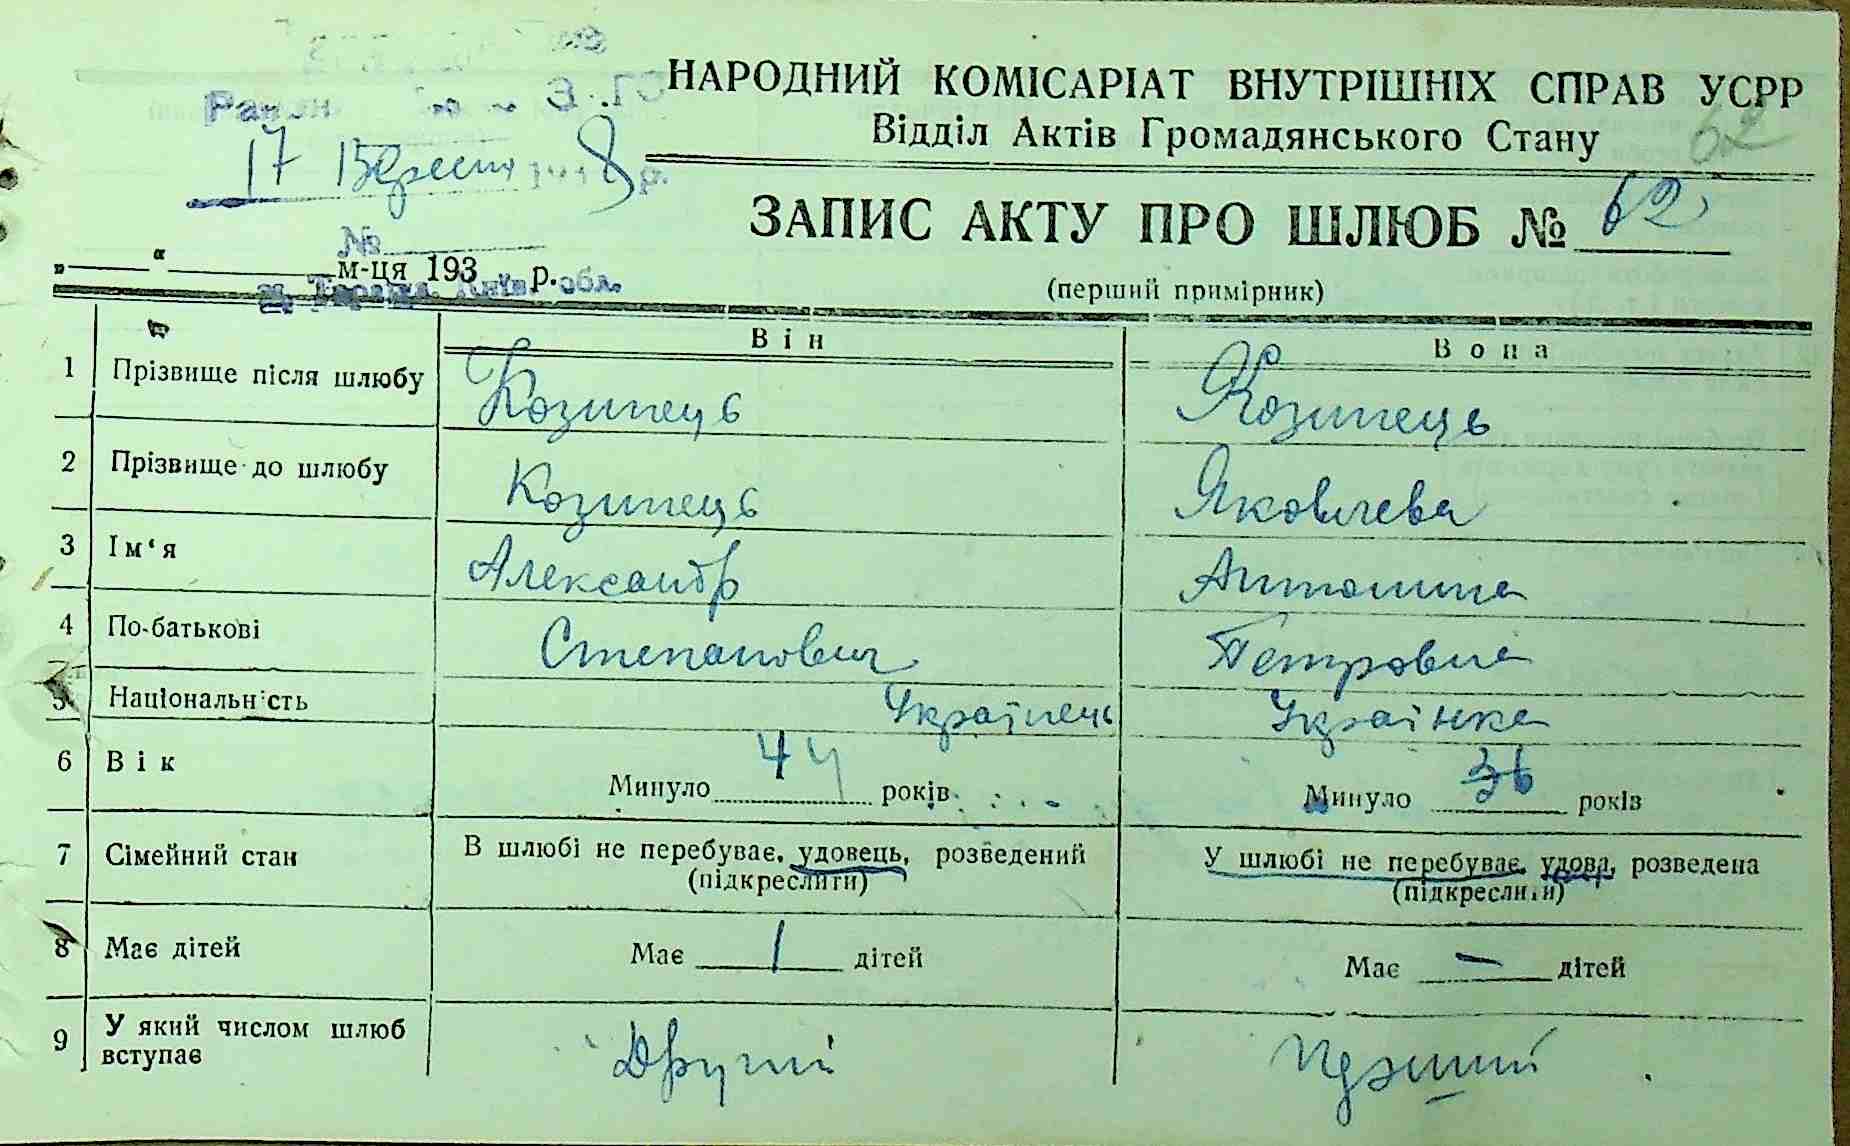 НАРОДНИЙ КОМІСАРІАТ ВНУТРІШНІХ СПРАВ УСРР
Відділ Актів Громадянського Стану
62
17 Вересня 8 р.
ЗАПИС АКТУ ПРО ШЛЮБ № 62
№
„ “ м-ця 193 р.
м. Тараща, Київ. обл.
(перший примірник)
Він Вона
1 Прізвище після шлюбу Козинець Козинець
2 Прізвище до шлюбу Козинець Яковлева
3 Ім‘я Александр Антонина
4 По-батькові Степанович Петровна
5 Національність Українець Українка
6 Вік Минуло 44 років Минуло 36 років
7 Сімейний стан В шлюбі не перебуває, удовець, розведений У шлюбі не перебуває, удова, розведена
(підкреслити) (підкреслити)
8 Має дітей Має 1 дітей Має — дітей
9 У який числом шлюб вступає Другий Перший